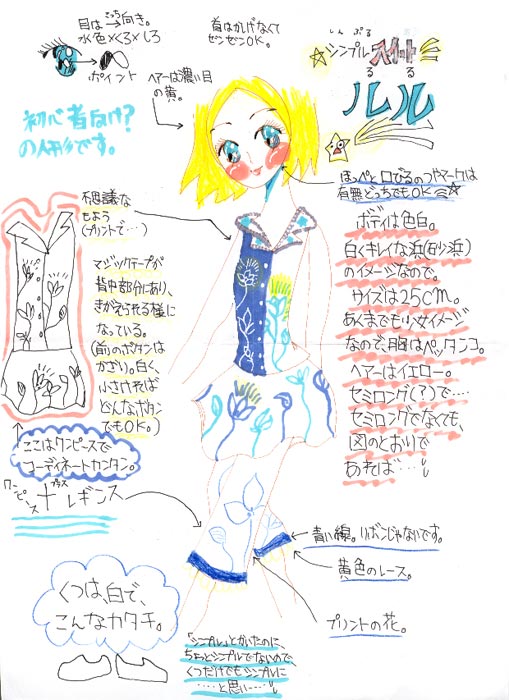 目は→向き。
こっち
水色×くろ×しろ
ポイント
首はかしげなくて
ゼンゼンOK。
ヘアーは濃い目
の黄。
しんぷる
シンプルスイート
るる
ルル
初心者向け?
の人形です。
ほっぺと口びるのつやマークは
有無どっちでもOK
不思議な
もよう
(プリントで…)
マジックテープが
背中部分にあり、
きがえられる様に
なっている。
(前のボタンは
かざり。白く、
小さければ
どんなボタン
でもOK。)
ボディは色白。
白くキレイな浜(砂浜)
のイメージなので。
サイズは25cm。
あくまでも少女イメージ
なので、胸はペッタンコ。
ヘアーはイエロー。
セミロング(?)で…
セミロングでなくても、
図のとおりで
あれば…
ここはワンピースで
コーディネートカンタン。
ワンピース+レギンス
プラス
青い線。リボンじゃないです。
黄色のレース。
プリントの花。
くつは、白で、
こんなカタチ。
「シンプル」とかいたのに
ちょっとシンプルでないので、
くつだけでもシンプルに
……と思い……